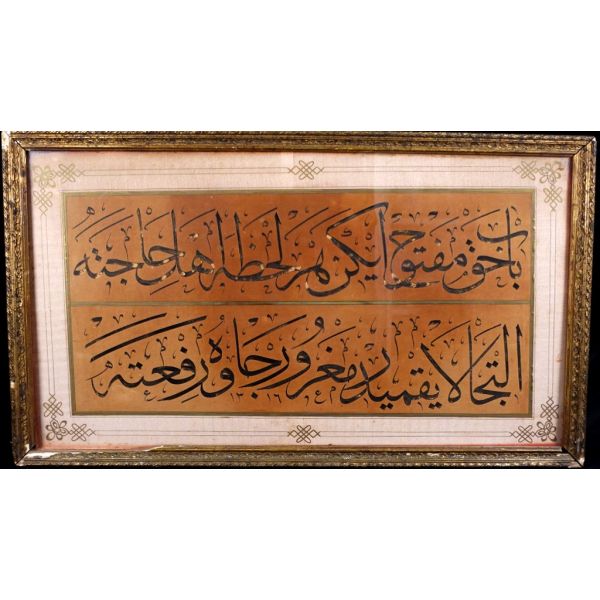 باب حق مفتوح ايكن هر لحظه اهل حاجته
التجا لايقميدر مغرور جاه و رفعته
١٣١٦